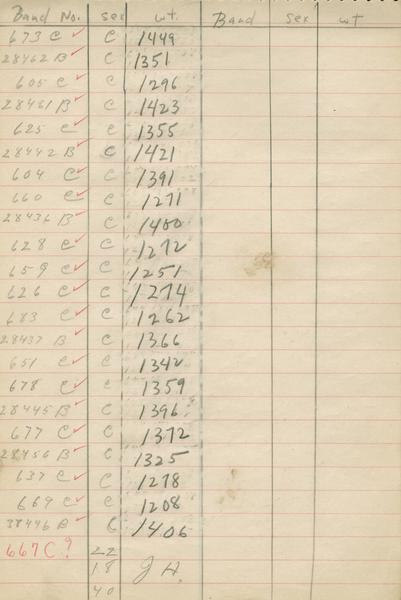 Band No. sex wt. Band sex wt
673 C ✓ C 1449
28462 B ✓ C 1351
605 C ✓ C 1296
28461 B ✓ C 1423
625 C ✓ C 1355
28442 B ✓ C 1421
604 C ✓ C 1391
660 C ✓ C 1271
28436 B ✓ C 1400
628 C ✓ C 1272
659 C ✓ C 1251
626 C ✓ C 1274
683 C ✓ C 1262
28437 B ✓ C 1366
651 C ✓ C 1342
678 C ✓ C 1359
28445 B ✓ C 1396
677 C ✓ C 1372
28456 B ✓ C 1325
637 C ✓ C 1278
669 C ✓ C 1208
28446 B ✓ C 1406
667 C? 22
18 J H.
40